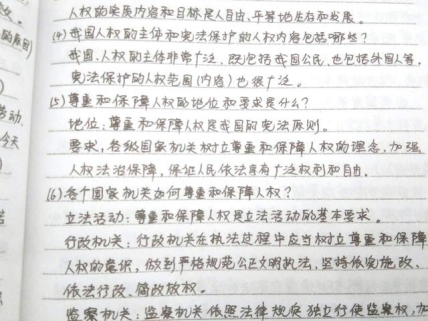 人权的实质内容和目标是人自由、平等地生存和发展。
(4)我国人权的主体和宪法保护的人权内容包括哪些?
我国人权的主体非常广泛,既包括我国公民,也包括外国人等,
宪法保护的人权范围(内容)也很广泛。
(5)尊重和保障人权的地位和要求是什么?
地位:尊重和保障人权是我国的宪法原则。
要求:各级国家机关树立尊重和保障人权的理念,加强
人权法治保障,保证人民依法享有广泛权利和自由。
(6)各个国家机关如何尊重和保障人权?
立法活动:尊重和保障人权是立法活动的基本要求。
行政机关:行政机关在执法过程中应当树立尊重和保障
人权的意识,做到严格规范公正文明执法,坚持依宪施政、
依法行政、简政放权。
监察机关:监察机关依照法律规定独立行使监察权,加
劳动,
今天